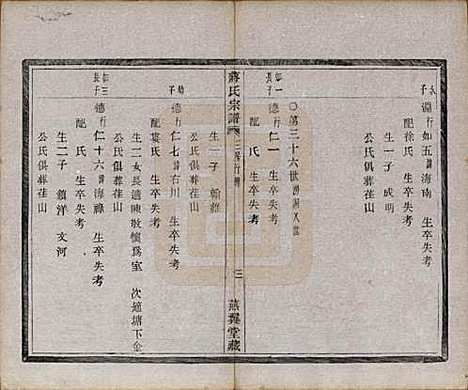 永子 濂行如五諱海南 生卒失考
配徐氏 生一子 成明
公氏俱葬荏山
○第三十六世
如一長子 德行仁一 生卒失考
配 氏 生卒失考
蔣氏宗譜 卷三 三 燕翼堂藏
生一子
子 德行仁七諱右川 生卒失考
配婁氏 生卒失考
生二女長適陳敬懷爲室 次適塘下金
公氏俱葬荏山
如三長子 德行仁十六諱海祿 生卒失考
配 氏 生卒失考
生二子 顯洋 文河
公氏俱葬荏山